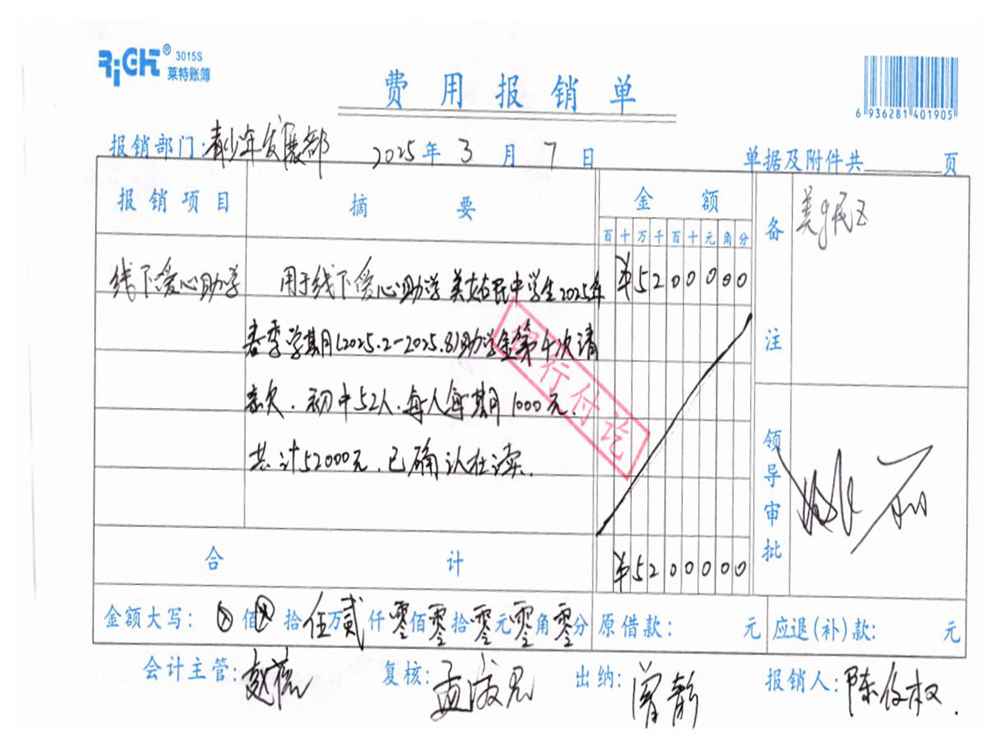 RiGHT® 3015S
莱特账簿
费用报销单
6 936281 401905
报销部门:青少年发展部 2025年3月7日 单据及附件共 页
报销项目 摘要 金额 备注
百十万千百十元角分
线下爱心助学 用于线下爱心助学美姑民中学生2025年 ¥5200000
春季学期(2025.2-2025.8)助学金第4次请
款.初中52人.每人每期1000元.
共计52000元.已确认在读.
行付讫
领导审批
合计 ¥5200000
金额大写: ⊗佰⊗拾伍万贰仟零佰零拾零元零角零分 原借款: 元 应退(补)款: 元
会计主管: 复核: 出纳:曾静 报销人:陈